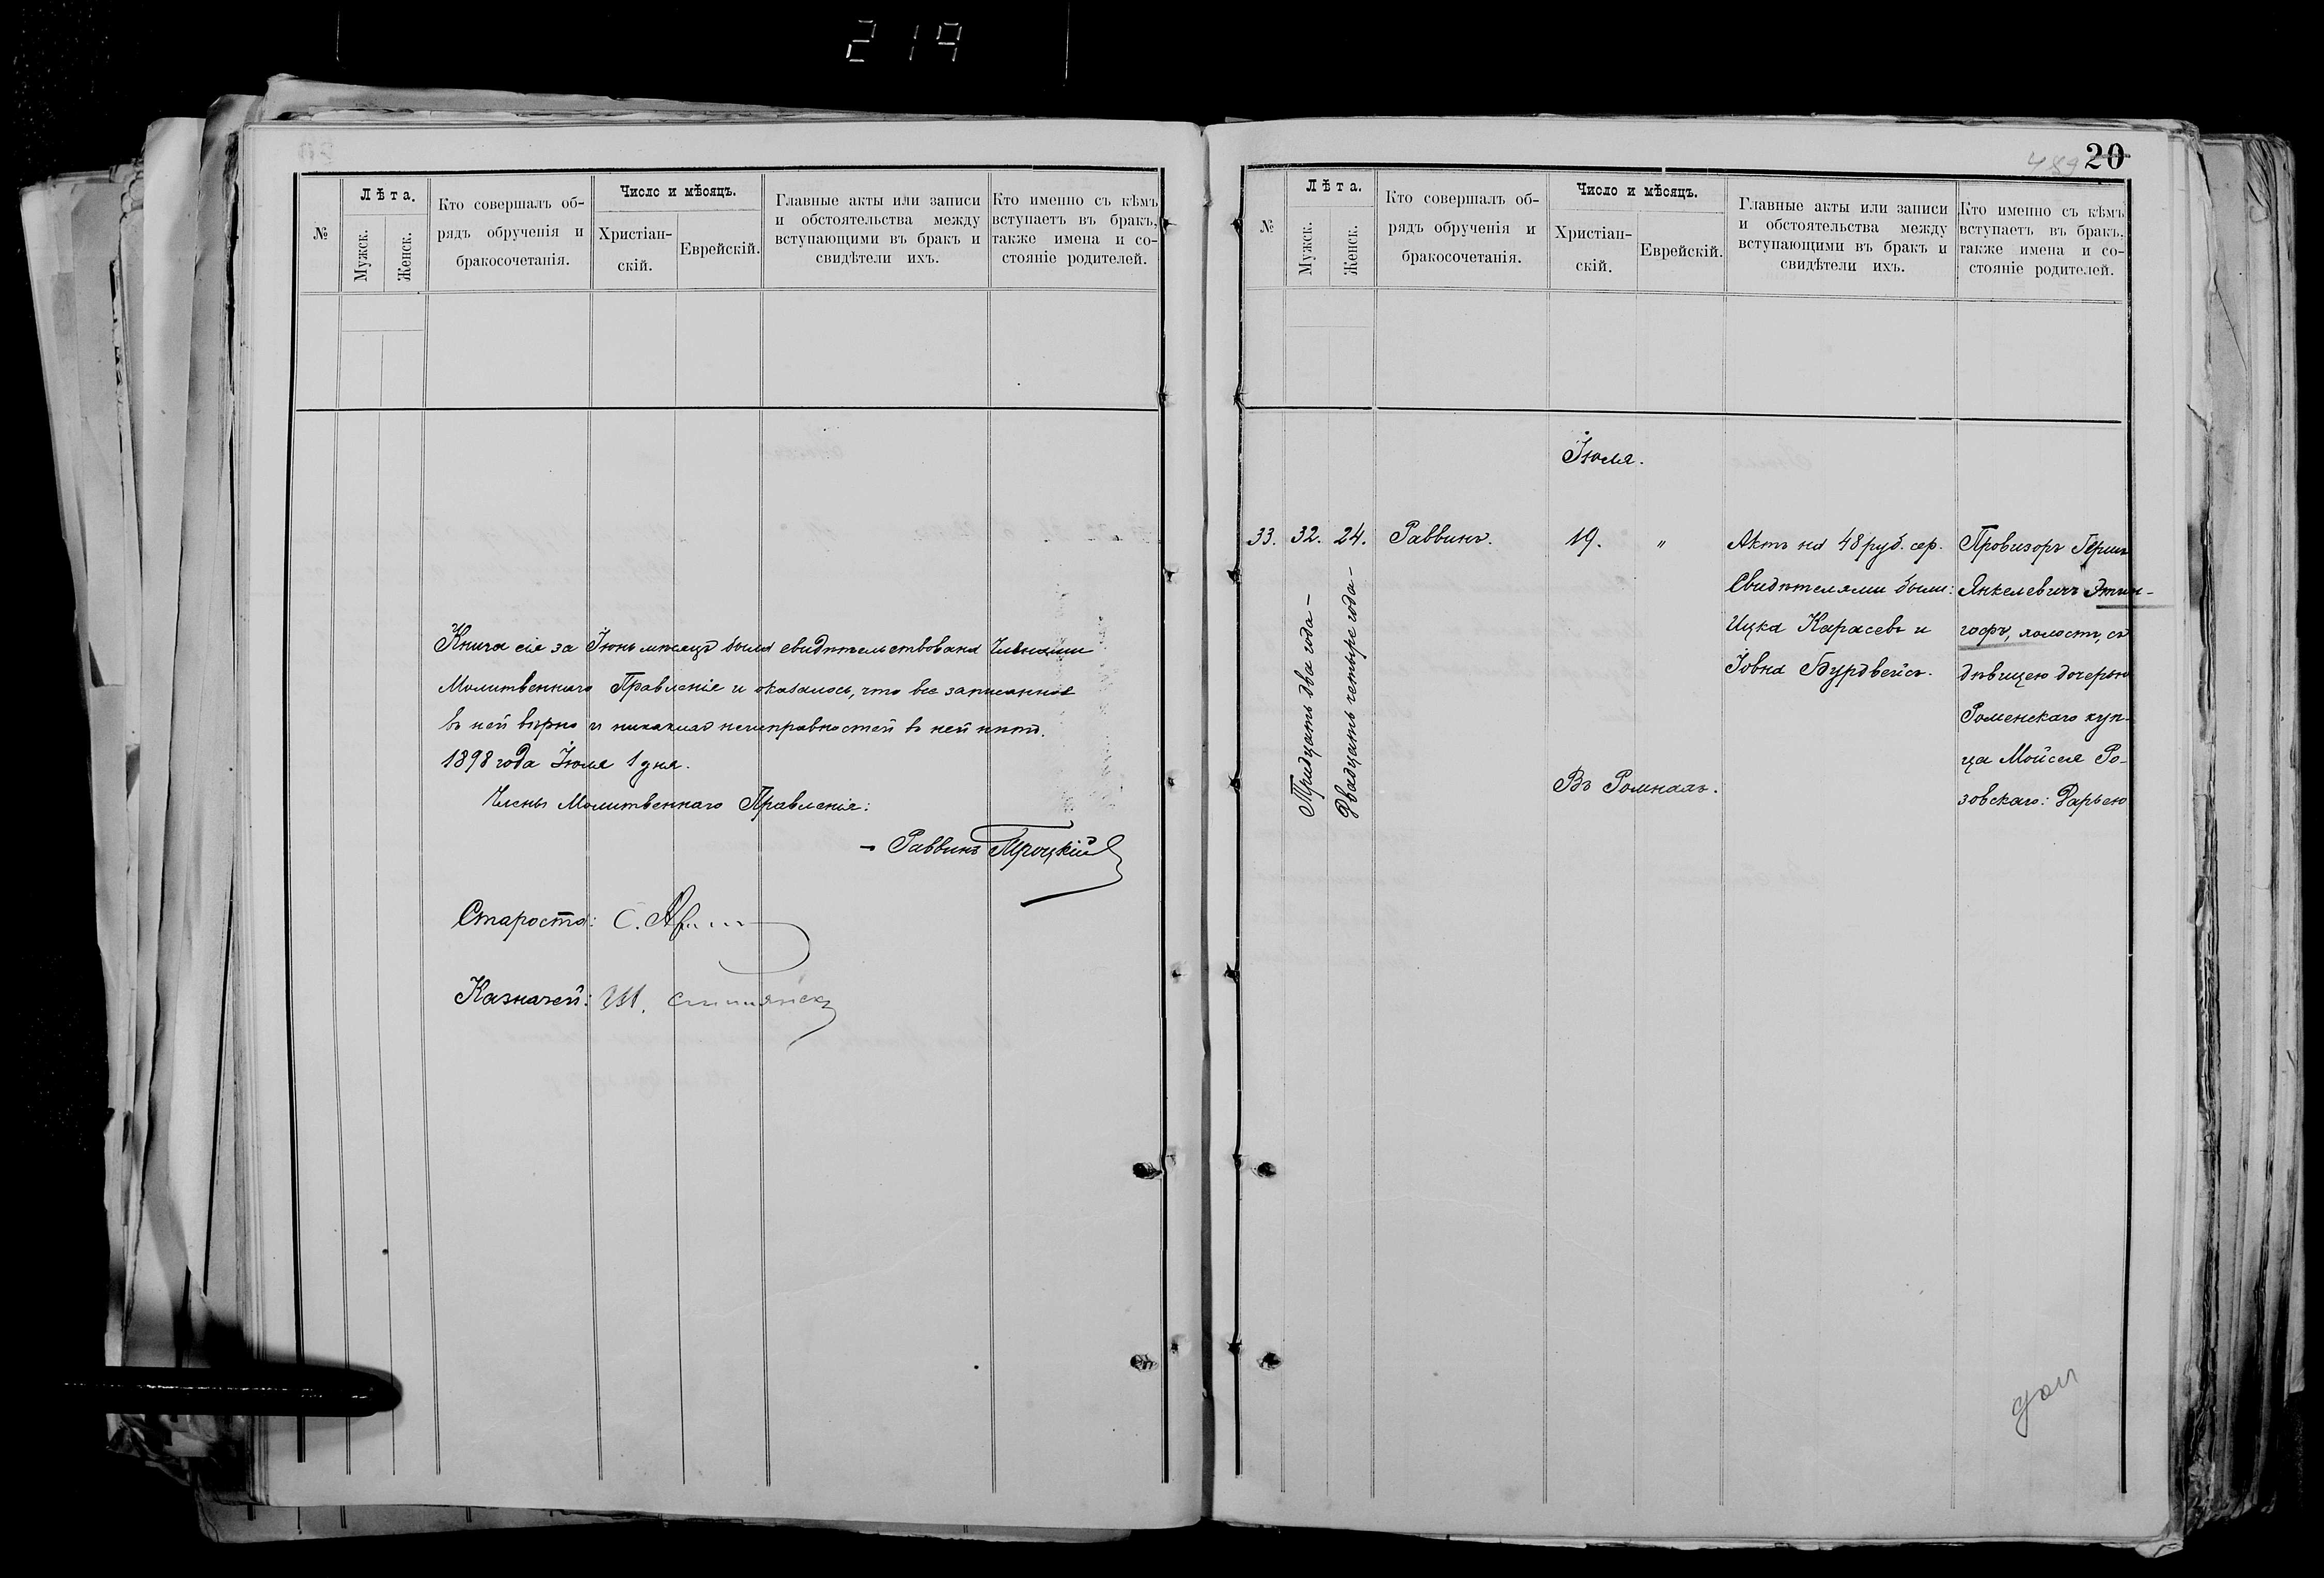 219
Лѣта.
Число и мѣсяцъ.
№
Мужск.
Женск.
Кто совершалъ об-
рядъ обрученія и
бракосочетанія.
Христіан-
скій.
Еврейскій.
Главные акты или записи
и обстоятельства между
вступающими въ бракъ и
свидѣтели ихъ.
Кто именно съ кѣмъ
вступаетъ въ бракъ,
также имена и со-
стояніе родителей.
Книга сія за Іюнь мѣсяцъ была свидѣтельствована Членами
Молитвеннаго Правленія и оказалось, что все записанное
въ ней вѣрно и никакихъ неисправностей въ ней нѣтъ.
1898 года Іюля 1 дня.
Члены Молитвеннаго Правленія:
— Раввинъ Троцкій
Староста: С.
Казначей: Ш.
489 20
Лѣта.
Число и мѣсяцъ.
№
Мужск.
Женск.
Кто совершалъ об-
рядъ обрученія и
бракосочетанія.
Христіан-
скій.
Еврейскій.
Главные акты или записи
и обстоятельства между
вступающими въ бракъ и
свидѣтели ихъ.
Кто именно съ кѣмъ
вступаетъ въ бракъ,
также имена и со-
стояніе родителей.
Іюля.
33. 32. 24. Раввинъ. 19. "
Тридцать два года —
Двадцать четыре года —
Актъ на 48 руб. сер.
Свидѣтелями были:
Ицка Карасевъ и
Іовна Бурдвейсъ.
Въ Ромнахъ.
Провизоръ Гершъ
Янкелевичъ Этин-
гофъ, холостъ, съ
дѣвицею дочерью
Роменскаго куп-
ца Мойсея Ро-
зовскаго: Дарьею